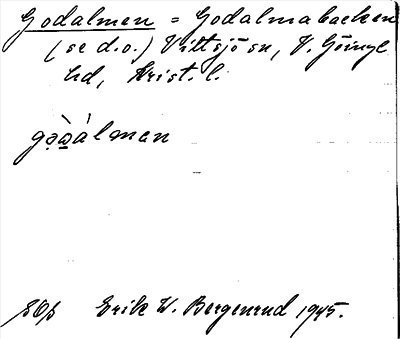 Godalmen = Godalmabacken
(se d.o.) Vittsjö sn, V. Göinge
hd, Krist. l.
Erik W. Bergenrud 1945.